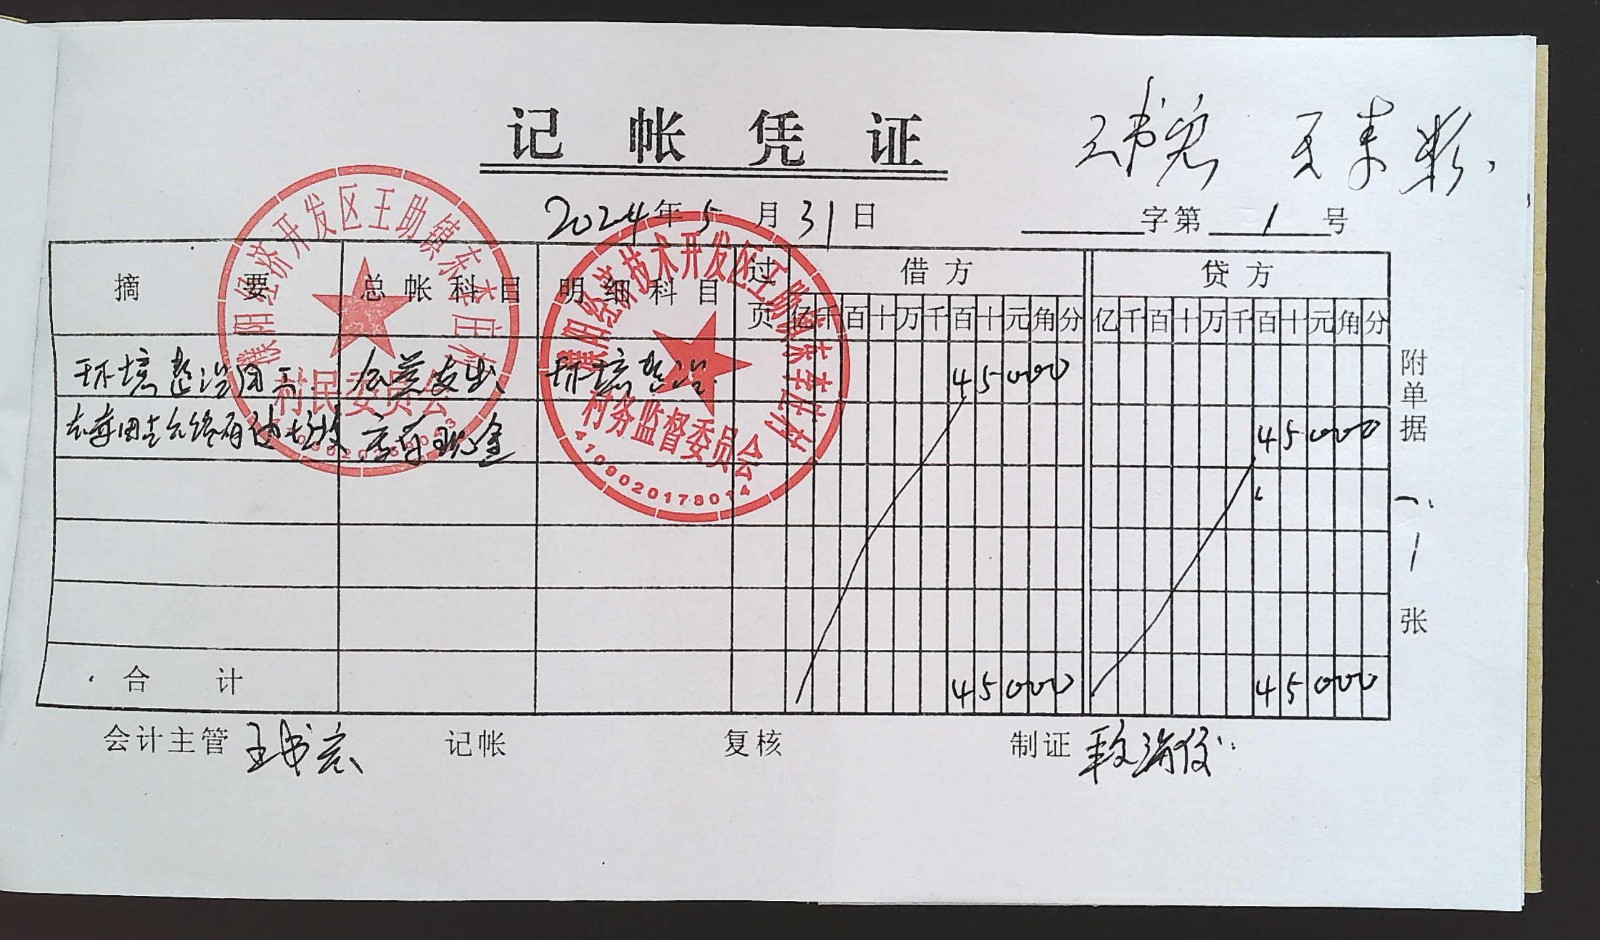 记帐凭证
2024年5月31日
字第 1 号
摘要 总帐科目 明细科目 过页 借方 贷方
亿千百十万千百十元角分 亿千百十万千百十元角分
环境整治用工 公益支出 环境整治 45000
库存现金 45000
合计 45000 45000
附单据
张
会计主管 王书宏 记帐 复核 制证
濮阳经济开发区王助镇东李庄村
村民委员会
濮阳经济技术开发区王助镇东李庄村
村务监督委员会
4109020178014